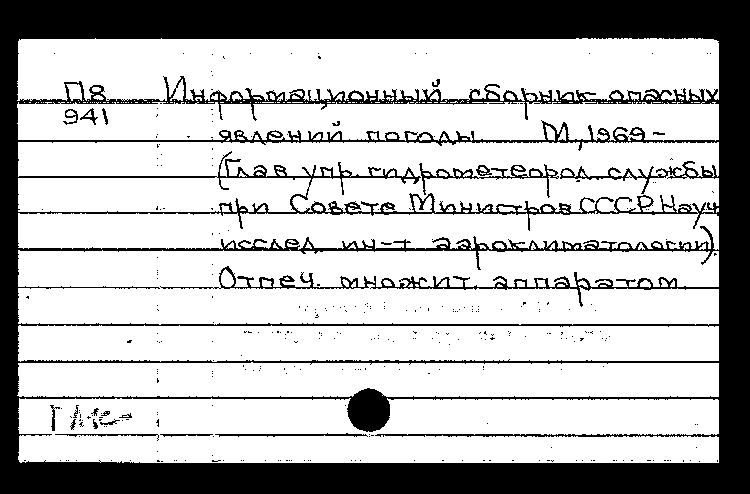 П8 Информационный сборник опасных
941
явлений погоды. М, 1969 -
(Глав. упр. гидрометеорол. службы
при Совете Министров СССР. Науч.
исслед. ин-т аэроклиматологии).
Отпеч. множит. аппаратом.